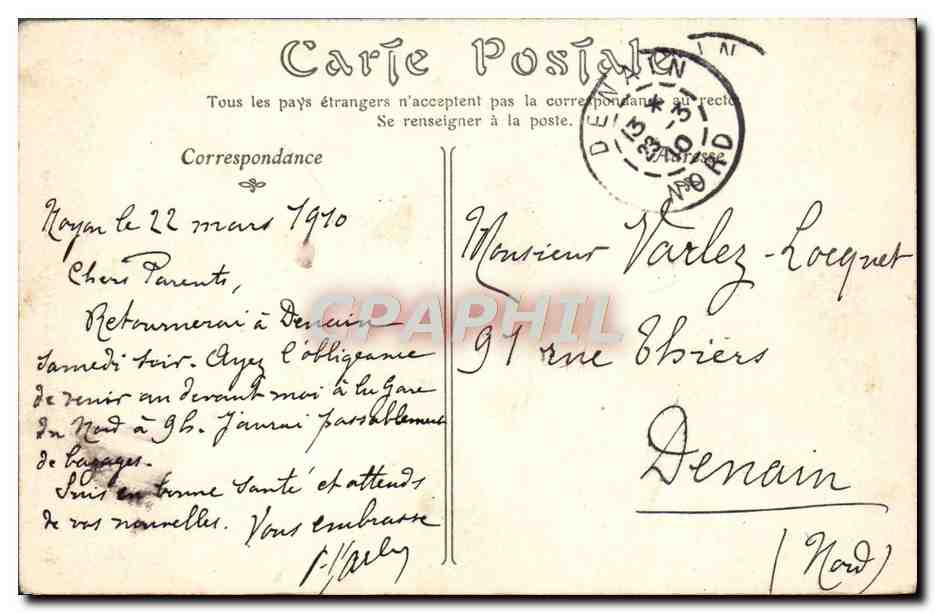 Carte Postale
Tous les pays étrangers n'acceptent pas la correspondance au recto.
Se renseigner à la poste.
DENAIN
NORD
13 *
23 - 3
10
Correspondance
Noyon le 22 mars 1910
Chers Parents,
Retournerai à Denain
Samedi soir. Ayez l'obligeance
de venir au devant moi à la Gare
du Nord à 9h. J'aurai passablement
de bagages.
Suis en bonne santé et attends
de vos nouvelles. Vous embrasse
Varlez
Adresse
Monsieur Varlez-Locquet
91 rue Thiers
Denain
(Nord)
CPAPHIL